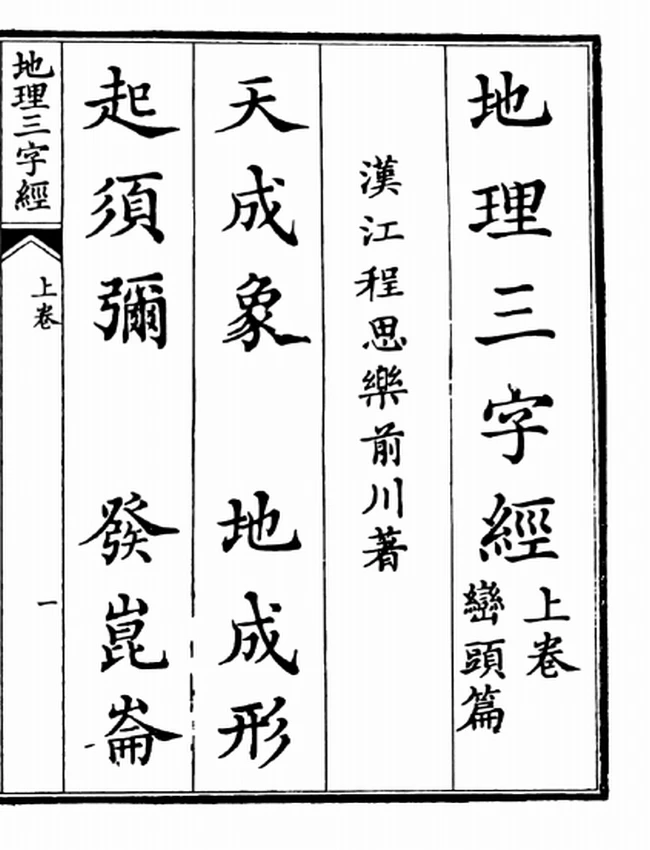 地理三字經
上卷
巒頭篇
漢江程思樂前川著
天成象 地成形
起須彌 發崑崙
地理三字經
上卷
一